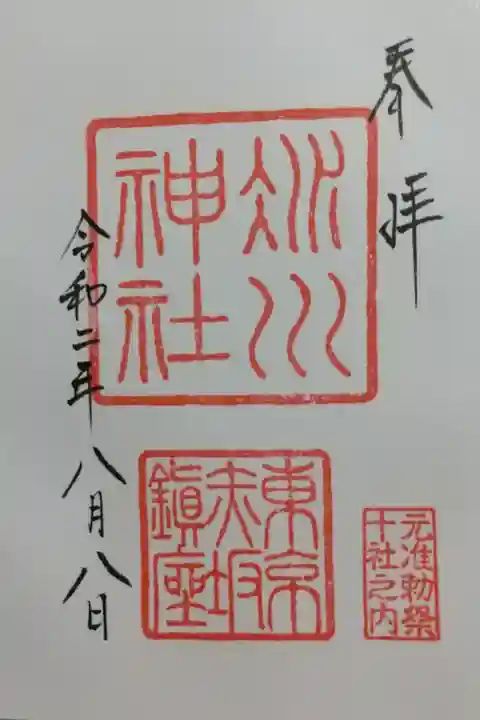 奉拝
氷川
神社
東京
赤坂
鎭座
元准勅祭
十社之内
令和二年八月八日